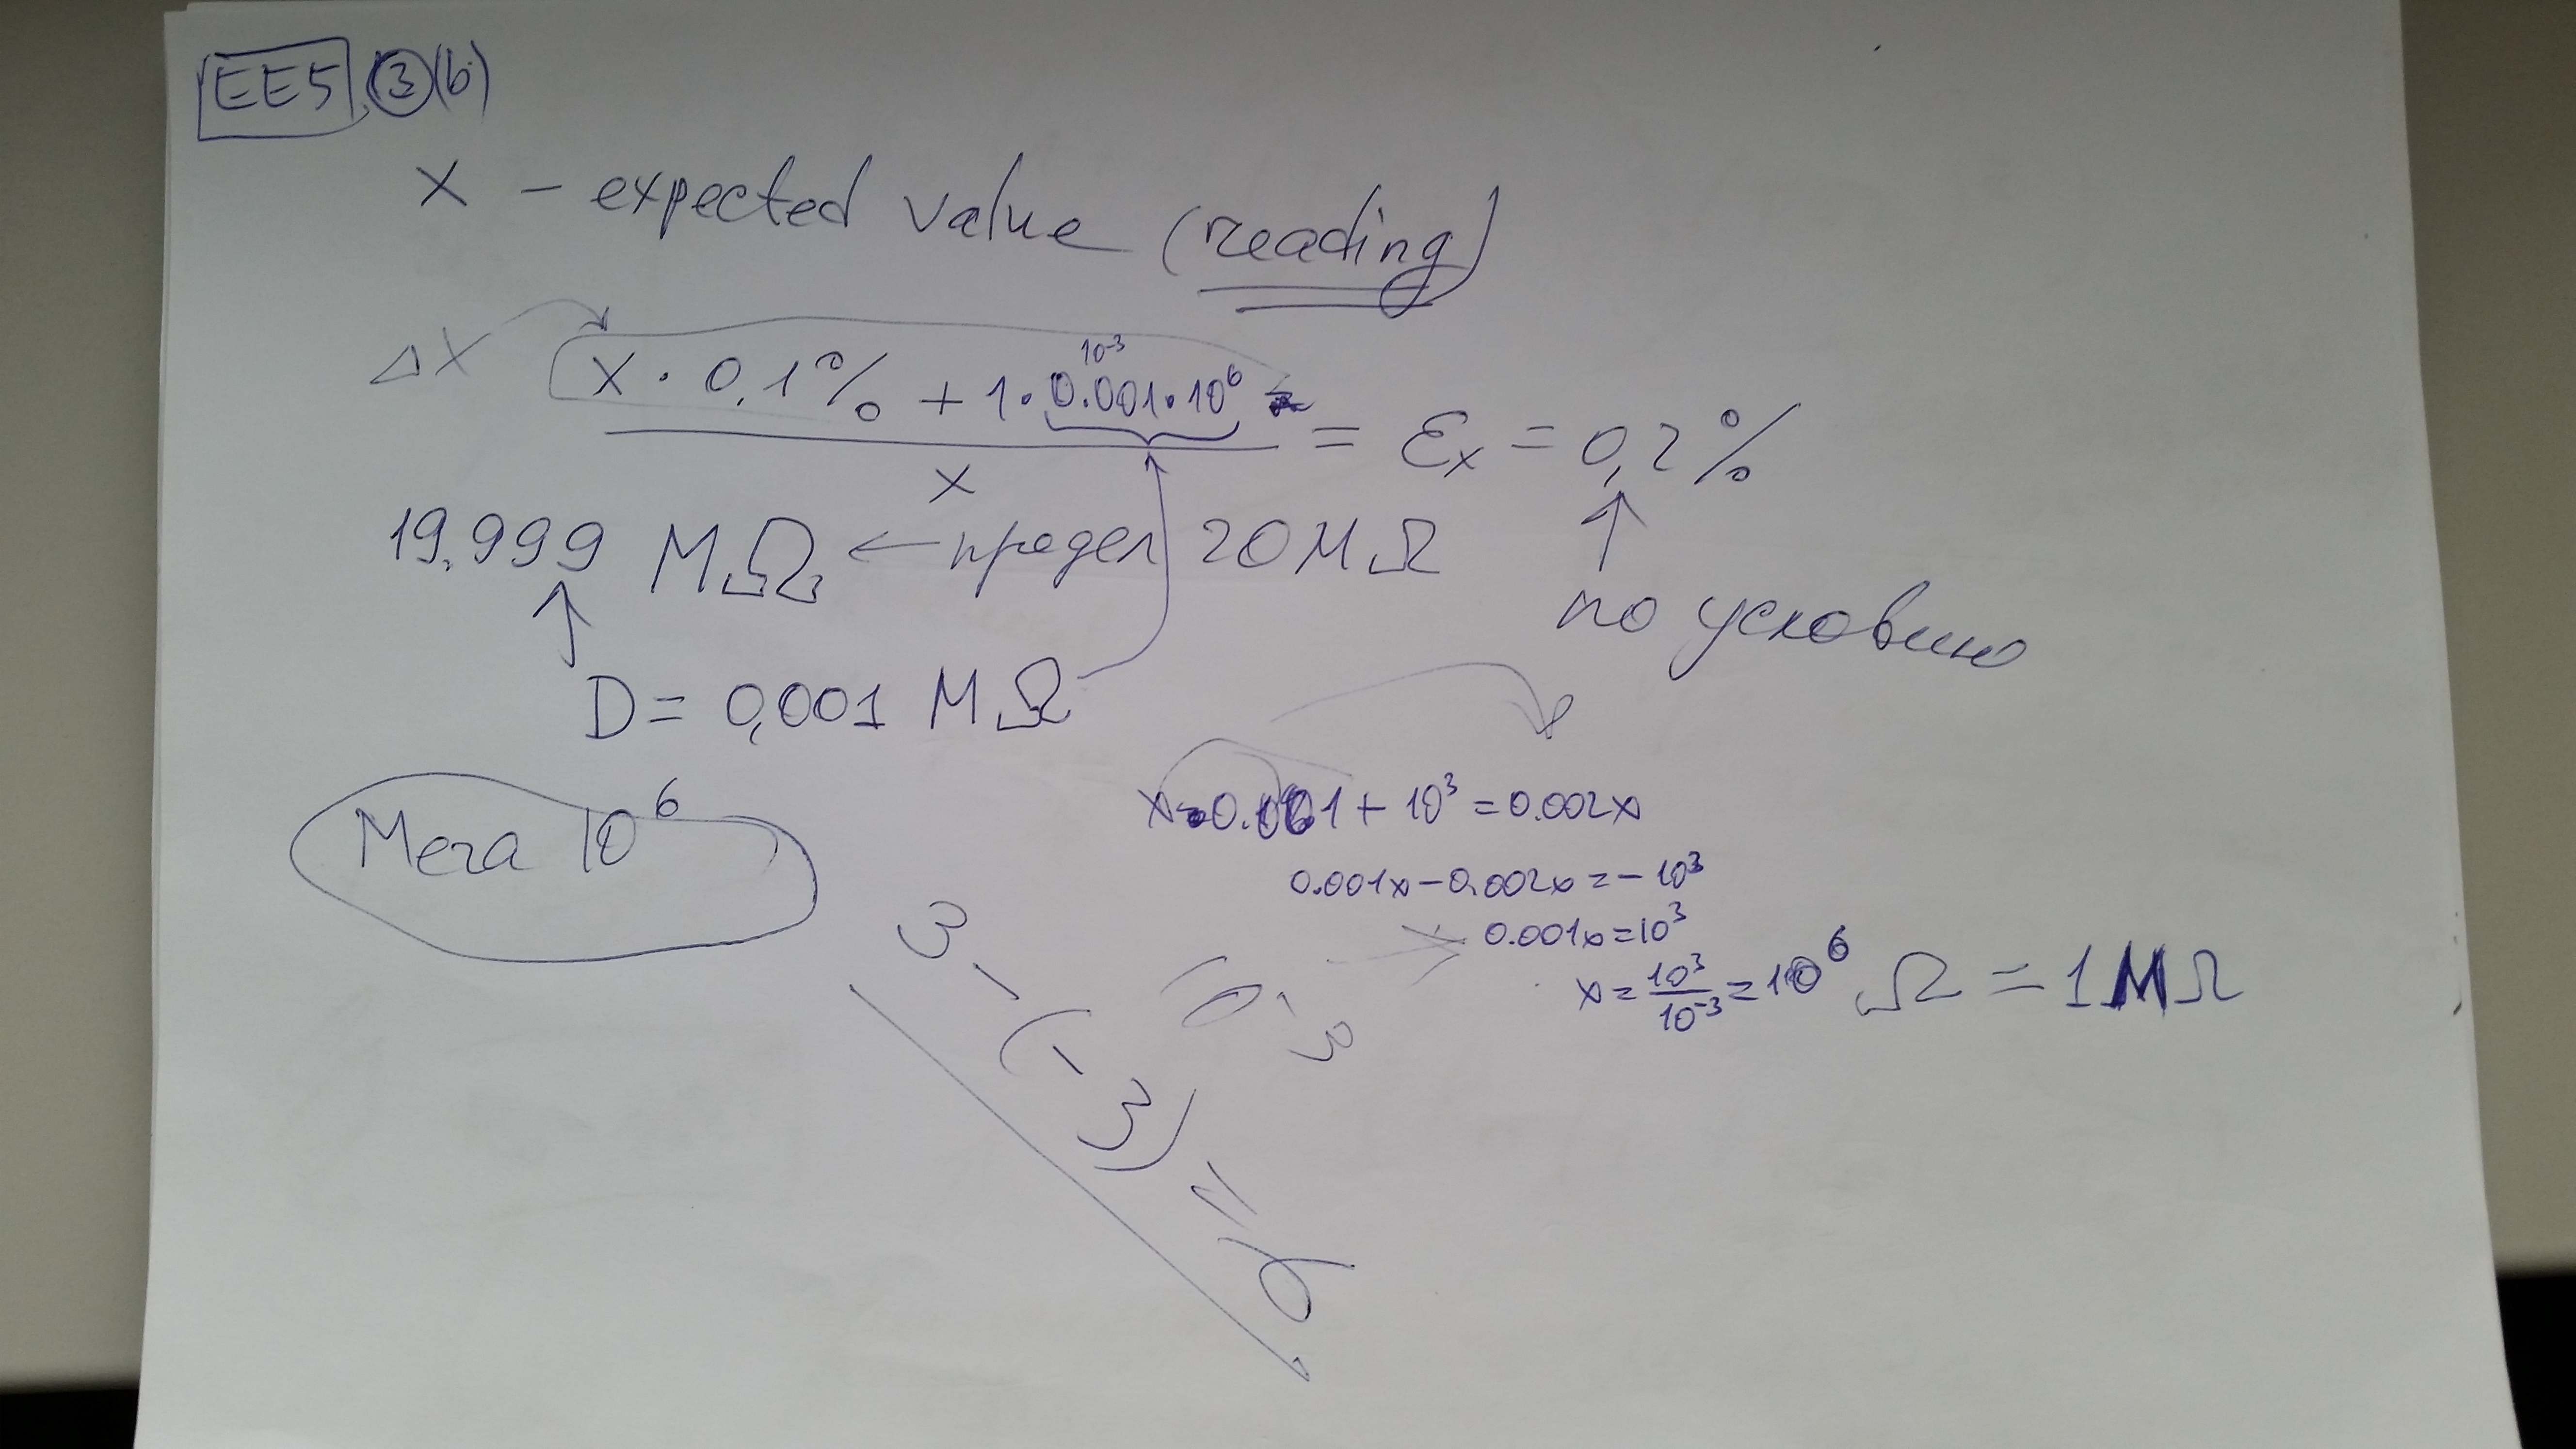 EE5 ③(b)
x – expected value (reading)
Δx x · 0,1% + 1 · 0.001 · 10⁶
10⁻³
x
= εₓ = 0,2%
19.999 MΩ ← предел 20 MΩ
по условию
D = 0,001 MΩ
Мега 10⁶
+ 10³ = 0.002x
0.001x – 0.002x = – 10³
0.001x = 10³
x = 10³/10⁻³ = 10⁶ Ω = 1 MΩ
3 – (–3) = 6